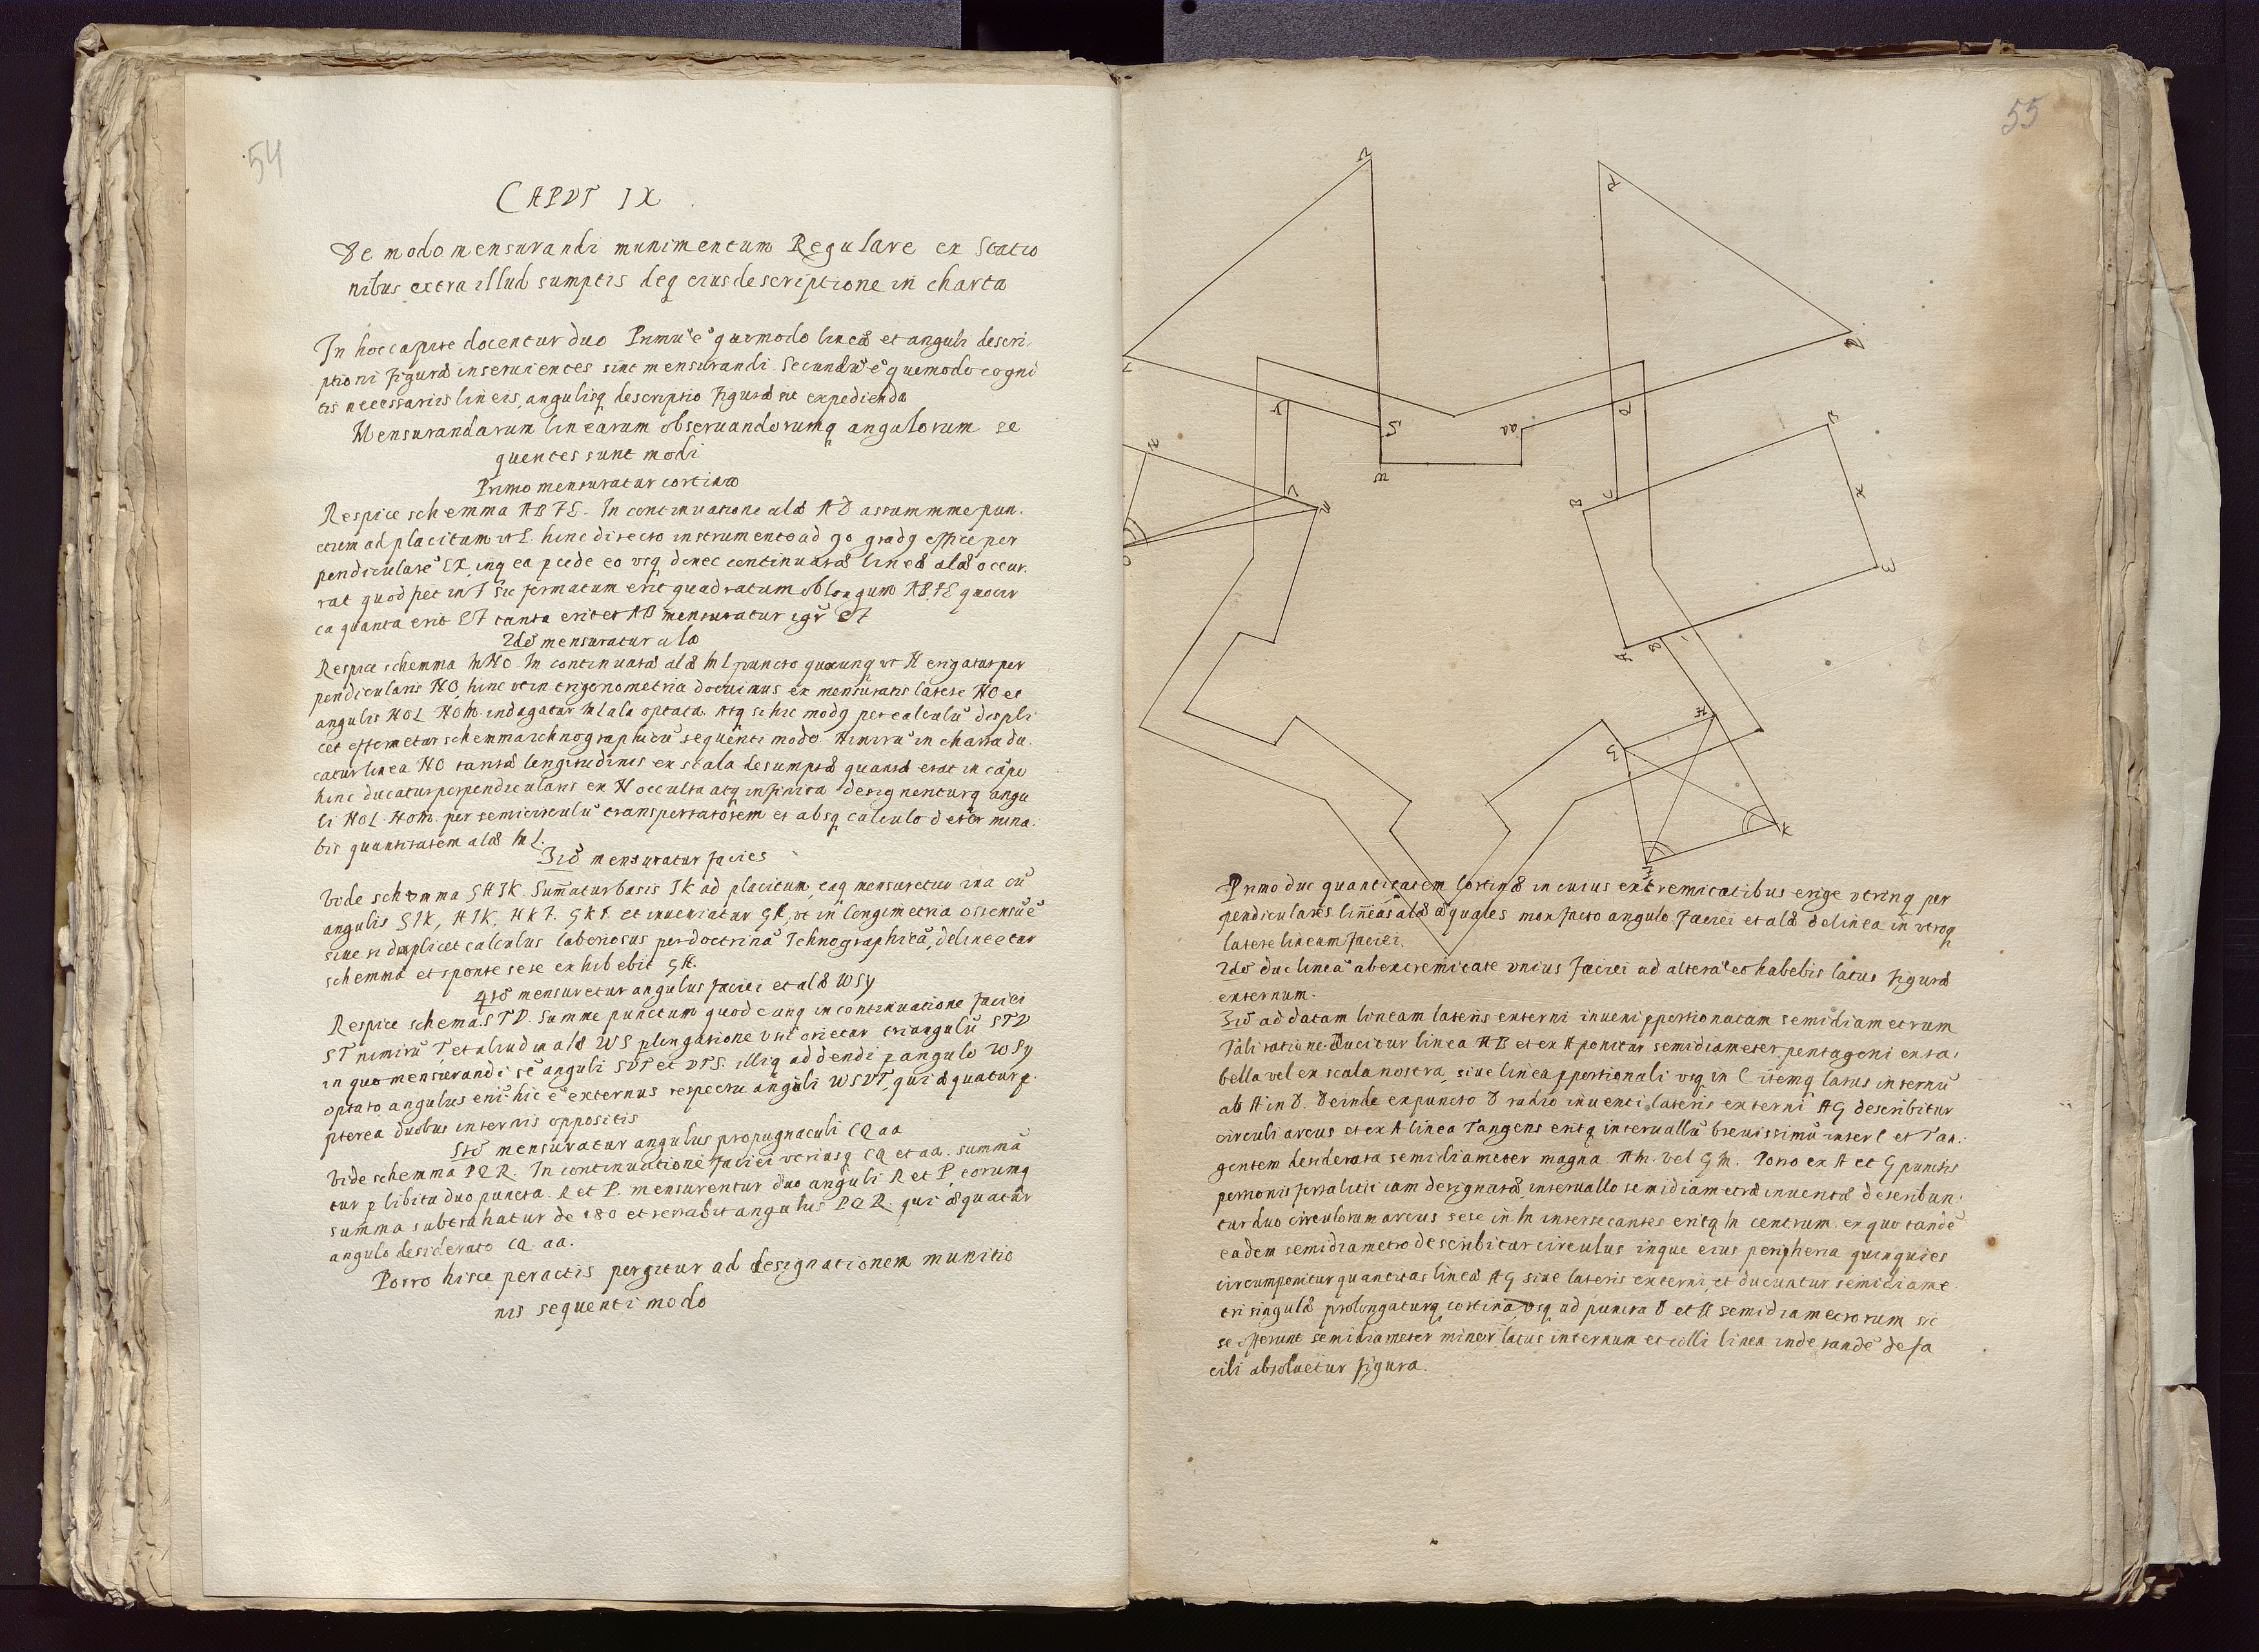 54
CAPVT IX
De modo mensurandi munimentum Regulare ex Statio
nibus extra illud sumptis deq eius descriptione in charta
In hoc capite docentur duo Primu e quomodo lineæ et anguli descri
ptioni figuræ inseruientes sint mensurandi. Secundu e quomodo cogni
tis necessariis lineis, angulisq descriptio figuræ sit expedienda
Mensurandarum linearum obseruandorumq angulorum se
quentes sunt modi
Primo mensuratur cortina
Respice schemma ABFE. In continuatione alæ AD assumme pun
ctum ad placitum vt E. hinc directo instrumento ad 90 grad9 effice per
pendiculare EX, inq ea pcede eo vsq donec continuatæ lineæ alæ occur
rat quod fiet in F sic formatum erit quadratum oblongum ABFE quocir
ca quanta erit EF tanta erit et AB mensuratur igr EF
2do mensuratur ala
Respice schemma MNO. In continuata alæ ML puncto quocunq vt N erigatur per
pendicularis NO, hinc vt in trigonometria docuimus ex mensuratis latere NO et
angulis NOL NOM indagatur ML ala optata. Atq si hic mod9 per calculu displi
cet efformetur schemma ichnographicu sequenti modo. Nimiru in charta du
catur linea NO tantæ longitudinis ex scala desumptæ quanta erat in capo
hinc ducatur perpendicularis ex N occulta atq infinita designenturq angu
li NOL. NOM. per semicirculu transportatorem et absq calculo determina
bis quantitatem alæ ML.
3tio mensuratur facies
Vide schemma GHIK. Sumatur basis IK ad placitum, eaq mensuretur una cu
angulis GIK, HIK, HKI. GKI. et inueniatur GH, vt in longimetria ostensu e
siue si displicet calculus laboriosus per doctrina Ichnographica, delineetur
schemma et sponte sese exhibebit GH.
4to mensuretur angulus faciei et alæ WSy
Respice schema STV. Summe punctum quodcunq in continuatione faciei
ST nimiru T, et aliud in alæ WS plongatione V sic orietur triangulu STV
in quo mensurandi st anguli SVT et VTS. illiq addendi p angulo WSy
optato angulus eni hic e externus respectu anguli WSVT, qui æquatur p
pterea duobus internis oppositis
5to mensuratur angulus propugnaculi CQ aa
Vide schemma PQR. In continuatione faciei vtriusq CQ et aa. summa
tur p libitu duo puncta. R et P. mensurentur duo anguli R et P, eorumq
summa subtrahatur de 180 et restabit angulus PQR. qui æquatur
angulo desiderato CQ aa.
Porro hisce peractis pergitur ad designationem munitio
nis sequenti modo
55
V
P
T
R
y
S
aa
Q
W
N
L
M
O
D
B
C
X
E
A
G
I
H
3
K
F
Primo duc quantitatem Cortinæ in cuius extremitatibus erige vtrinq per
pendiculares lineas alæ æquales mox facto angulo faciei et alæ delinea in vtroq
latere lineam faciei.
2do duc linea ab extremitate vnius faciei ad altera eo habebis latus figuræ
externum.
3tio ad datam lineam lateris externi inueni pportionatam semidiametrum
Tali ratione. Ducitur linea AB et ex A ponitur semidiameter pentagoni ex ta
bella vel ex scala nostra, siue linea pportionali vsq in C itemq latus internu
ab A in D. Deinde ex puncto D radio inuenti lateris externi AG describitur
circuli arcus et ex A linea Tangens eritq interuallu breuissimu inter C et Tan
gentem desiderata semidiameter magna AM. vel GM. Porro ex A et G punctis
pro munis fortalitii iam designatæ, interuallo semidiametræ inuentæ describun
tur duo circulorum arcus sese in M intersecantes eritq M centrum. ex quo tande
eadem semidiametro describitur circulus inque eius peripheria quinquies
circumponitur quantitas lineæ AG siue lateris externi, et ducuntur semidiame
tri singulæ prolongaturq cortina vsq ad puncta D et H semidiametrorum sic
se offerunt semidiameter minor, latus internum et colli linea inde tande de fa
cili absoluetur figura.